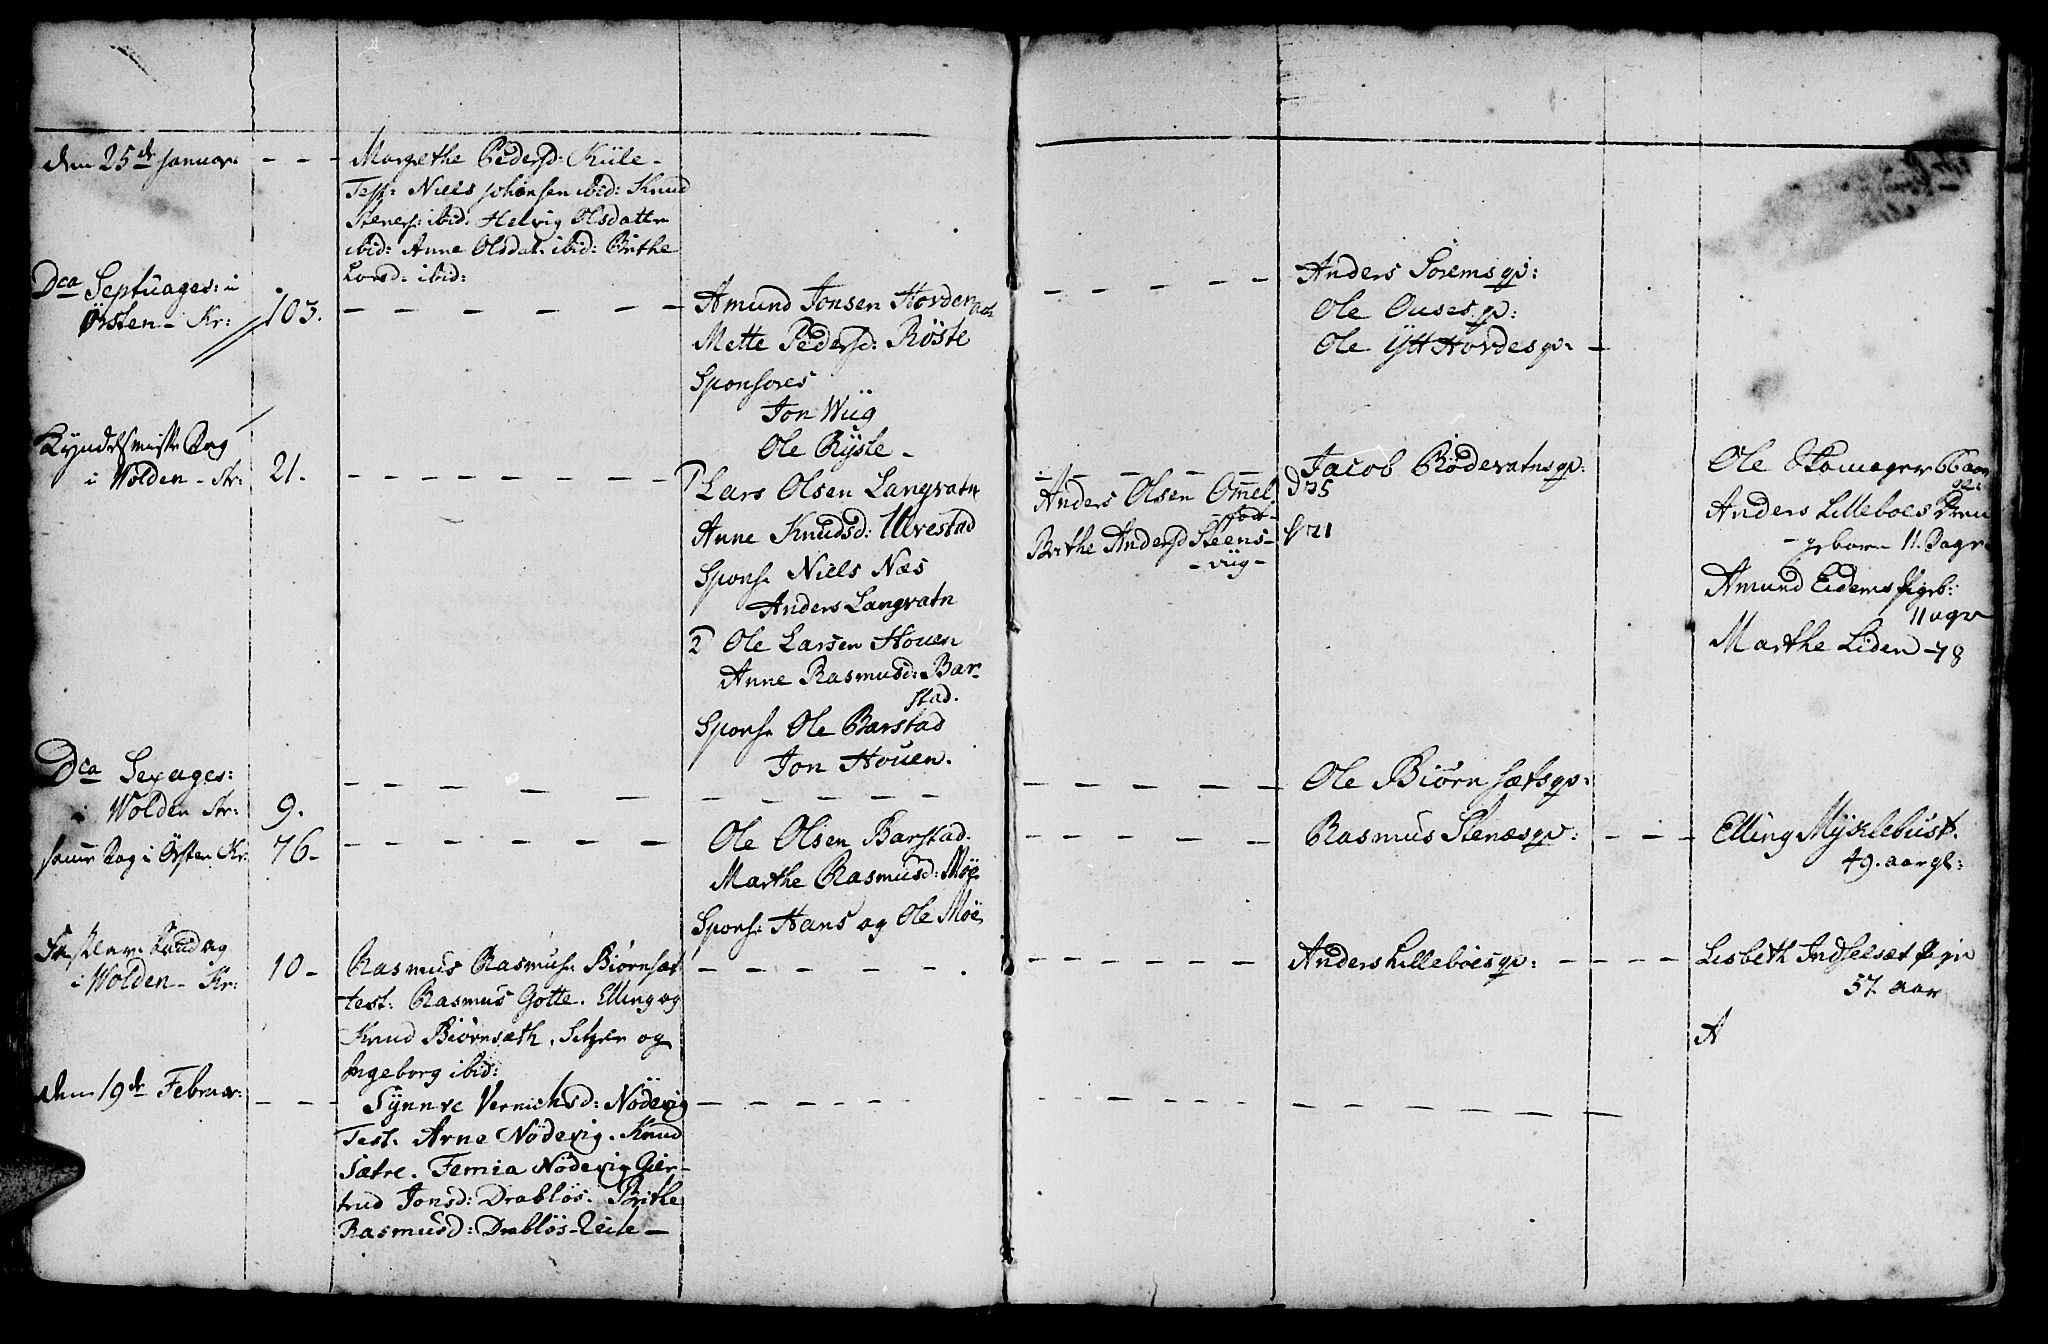 den 25de Januar: - - -
Margethe Pedersd: Kiile -
Test: Niels Johansen ibid: Knud
Stenes: ibid: Helvig Olsdatter
ibid: Anne Olsdat: ibid: Brithe
Larsd: ibid:
Dca Septuages: i
Ørsten - Kr: 103.
Amund Jonsen Hovden och
Mette Pedersd: Röste
Sponsores
Jon Wiig
Ole Ryste -
Anders Soremsgv:
Ole Ousesgv:
Ole Ytt Hovdesgv: -
Kyndelsmisse Dag
i Wolden - Kr: 21.
1 Lars Olsen Langvatn
Anne Knudsd: Ulvestad
Spons: Niels Næs
Anders Langvatn
2 Ole Larsen Houen
Anne Rasmusd: Bar-
stad.
Spons: Ole Barstad
Jon Houen.
Anders Olsen Omel
Brithe Andersd Steens-
- viig -
Jacob Rödevatnsgv:
Ole Skomager 66 aar
Anders Lilleboes
11. Dage
Amund Eidems
11 uger
Marthe Liden - 78
Dca Sexages:
i Wolden Kr: 9.
Ole Biørnsætsgv:
samme Dag i Ørsten Kr: 76 -
Ole Olsen Barstad.
Marthe Rasmusd: Moe
Spons: Hans og Ole Moe
Rasmus Stenæsgv:
Elling Myklebust.
49. aar gl:
Fastelav: Søndag
i Wolden - Kr: 10 -
Rasmus Rasmuss: Biørnsæt
test: Rasmus Gotte. Elling og
Knud Biørnsæth, og
Ingeborg ibid:
Anders Lilleboesgv:
Lisbeth Indselsæt
57. aar
A
den 19de Februar:
Synnve Vernichsd: Nödevig
Test. Arne Nödevig. Knud
Sætre. Femia Nödevig Gier-
trud Jonsd: Drabløs. Brithe
Rasmusd: Drabløs-Leite -